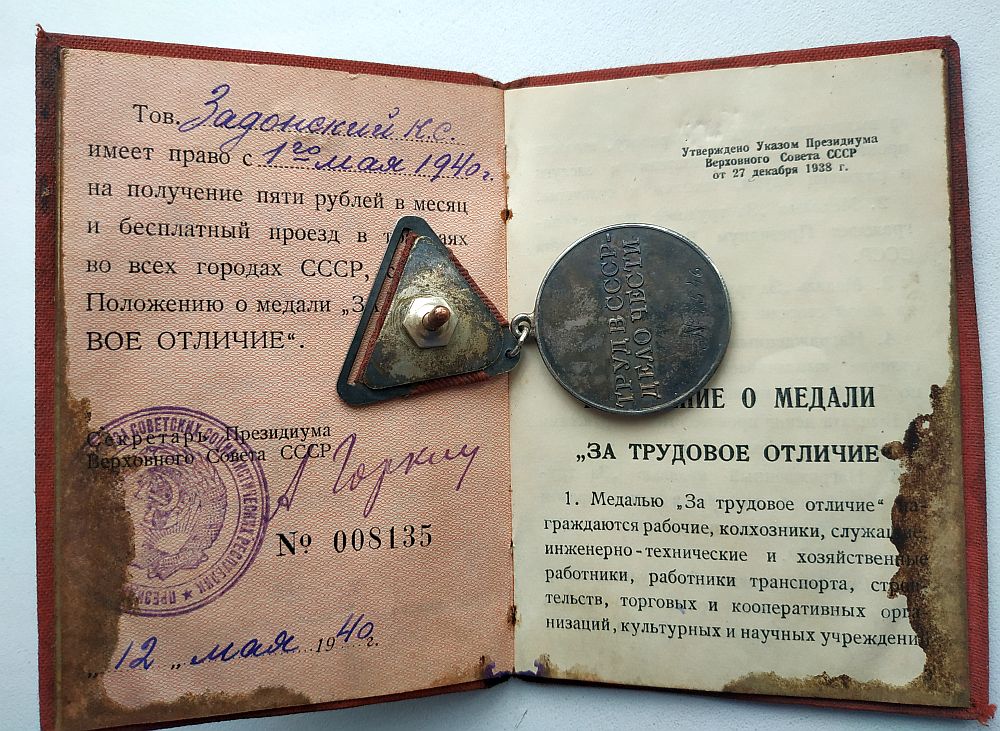 Тов. Задонский К.С.
имеет право с 1го мая 1940г.
на получение пяти рублей в месяц
и бесплатный проезд в
во всех городах СССР,
Положению о медали „
ВОЕ ОТЛИЧИЕ“.
Секретарь Президиума
Верховного Совета СССР
А Горкин
№ 008135
„12„ мая 1940 г.
Утверждено Указом Президиума
Верховного Совета СССР
от 27 декабря 1938 г.
ТРУД В СССР-
ДЕЛО ЧЕСТИ
О МЕДАЛИ
„ЗА ТРУДОВОЕ ОТЛИЧИЕ
1. Медалью „За трудовое отличие“ на-
граждаются рабочие, колхозники, служащие,
инженерно-технические и хозяйственные
работники, работники транспорта, строи-
тельств, торговых и кооперативных орга-
низаций, культурных и научных учреждений